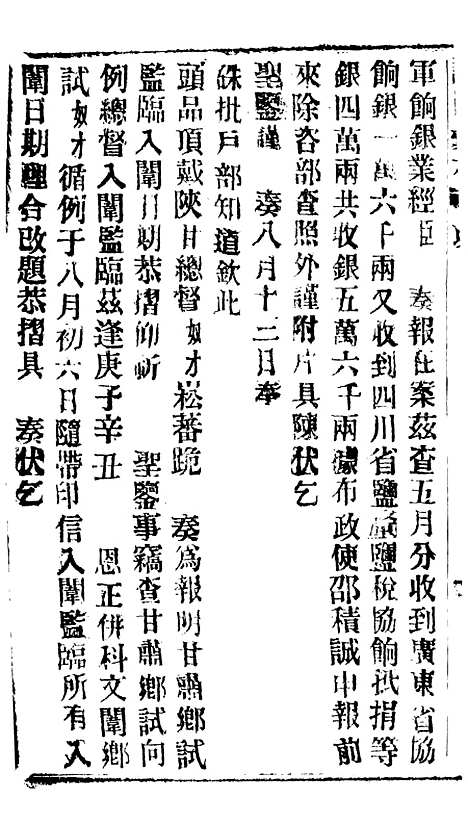 軍餉銀業經臣　奏報在案茲查五月分收到廣東省協
餉銀一萬六千兩又收到四川省鹽釐鹽稅協餉抵捐等
銀四萬兩共收銀五萬六千兩據布政使邵積誠申報前
來除咨部查照外謹附片具陳伏乞
聖鑒謹　奏八月十二日奉
硃批戶部知道欽此
頭品頂戴陝甘總督奴才崧蕃跪　奏為報明甘肅鄉試
監臨入闈日期恭摺仰祈　聖鑒事竊查甘肅鄉試向
例總督入闈監臨茲逢庚子辛丑　恩正併科文闈鄉
試奴才循例于八月初六日隨帶印信入闈監臨所有入
闈日期理合改題恭摺具　奏伏乞